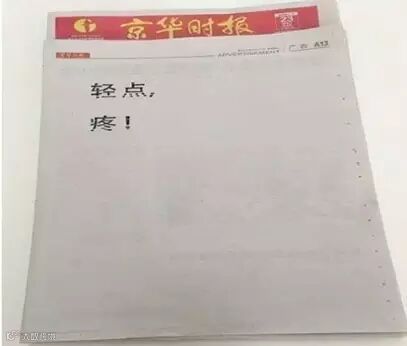 京华时报
ADVERTISEMENT 广告 A13
轻点,
疼!